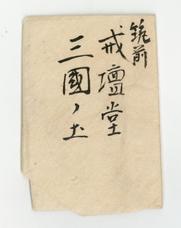 筑前
戒壇堂
三國ノ土